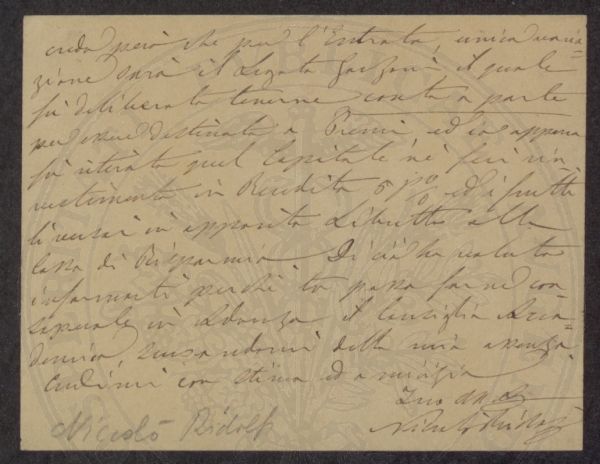 credo però che per l'Entrata, unica varia-
zione sarà il Legato Garzoni il quale
fu deliberato tenerne conto a parte
per essere destinato a Premi ed io appena
fu ritirato quel Capitale né feci rin-
vestimento in Rendita 5 p% ed i frutti
li versai in apposito Libretto alla
Cassa di Risparmio. Di ciò ho voluto
informarti perché tu possa farne con
sapevole in Adunanza il Consiglio Acca-
demico, scusandomi della mia assenza.
Credimi con stima ed amicizia
Tuo
Niccolò Ridolfi
Niccolò Ridolfi